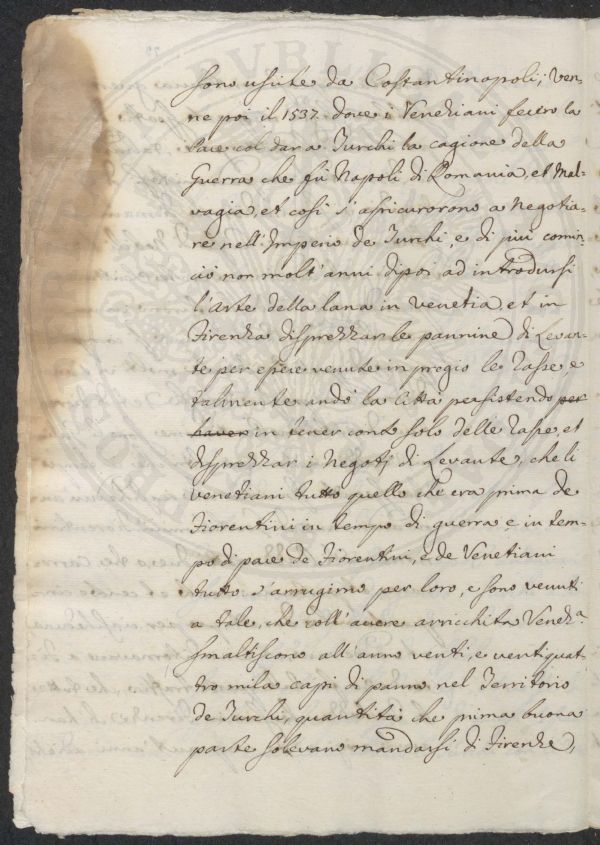 sono uscite da Costantinopoli; Ven-
ne poi il 1537. dove i Veneziani fecero la
Pace col dar a Turchi la cagione della
Guerra che fù Napoli di Romania, et Mal-
vagia, et così s'assicurorono a Negotia-
re nell'Imperio de Turchi, e di più comin-
ciò non molt'anni dipoi ad introdursi
l'Arte della lana in Venetia et in
Firenza disprezzar le pannine di Levan-
te per essere venute in pregio le rasse e
talmente andò la Città persistendo per
haver in tener conto solo delle rasse, et
disprezzar i Negotj di Levante, che li
Venetiani tutto quello che era prima de
Fiorentini in tempo di guerra e in tem-
po di pace de Fiorentini, e de Venetiani
tutto s'arrugirno per loro, e sono venuti
a tale, che coll'avere arricchita Venez.ª
smaltiscono all'anno venti, e ventiquat-
tro mila capi di panno nel Territorio
de Turchi, quantità che prima buona
parte solevano mandarsi di Firenze,